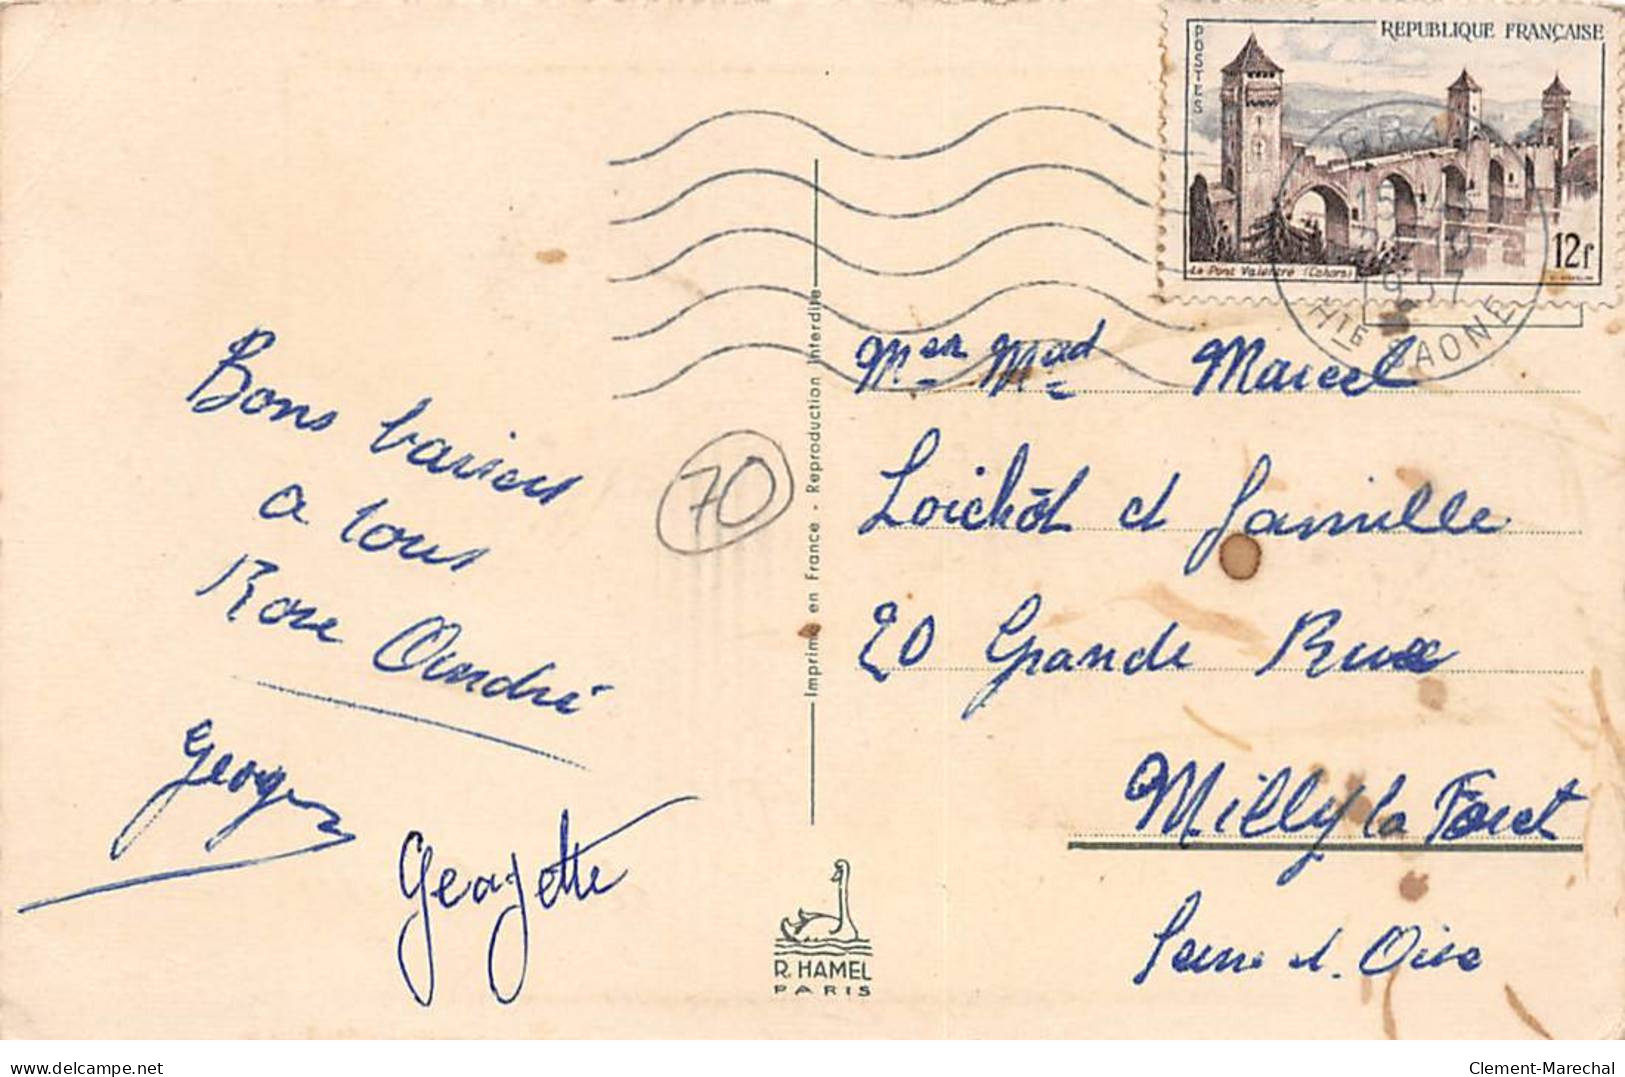 REPUBLIQUE FRANÇAISE
POSTES
Le Pont Valentré (Cahors)
12f
15
1957
HTE SAONE
Bons baisers
a tous
Rose André
Georges
Georgette
70
Imprimé en France - Reproduction Interdite
R. HAMEL
PARIS
Mer Mad Marcel
Loichôt et famille
20 Grande Rue
Milly la Foret
Seine et Oise
delcampe.net
Clement-Marechal